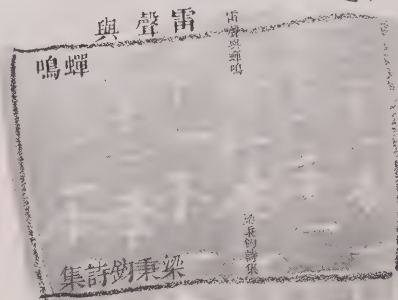 雷聲與
蟬鳴
雷聲與蟬鳴
梁秉鈞詩集
梁秉鈞詩集